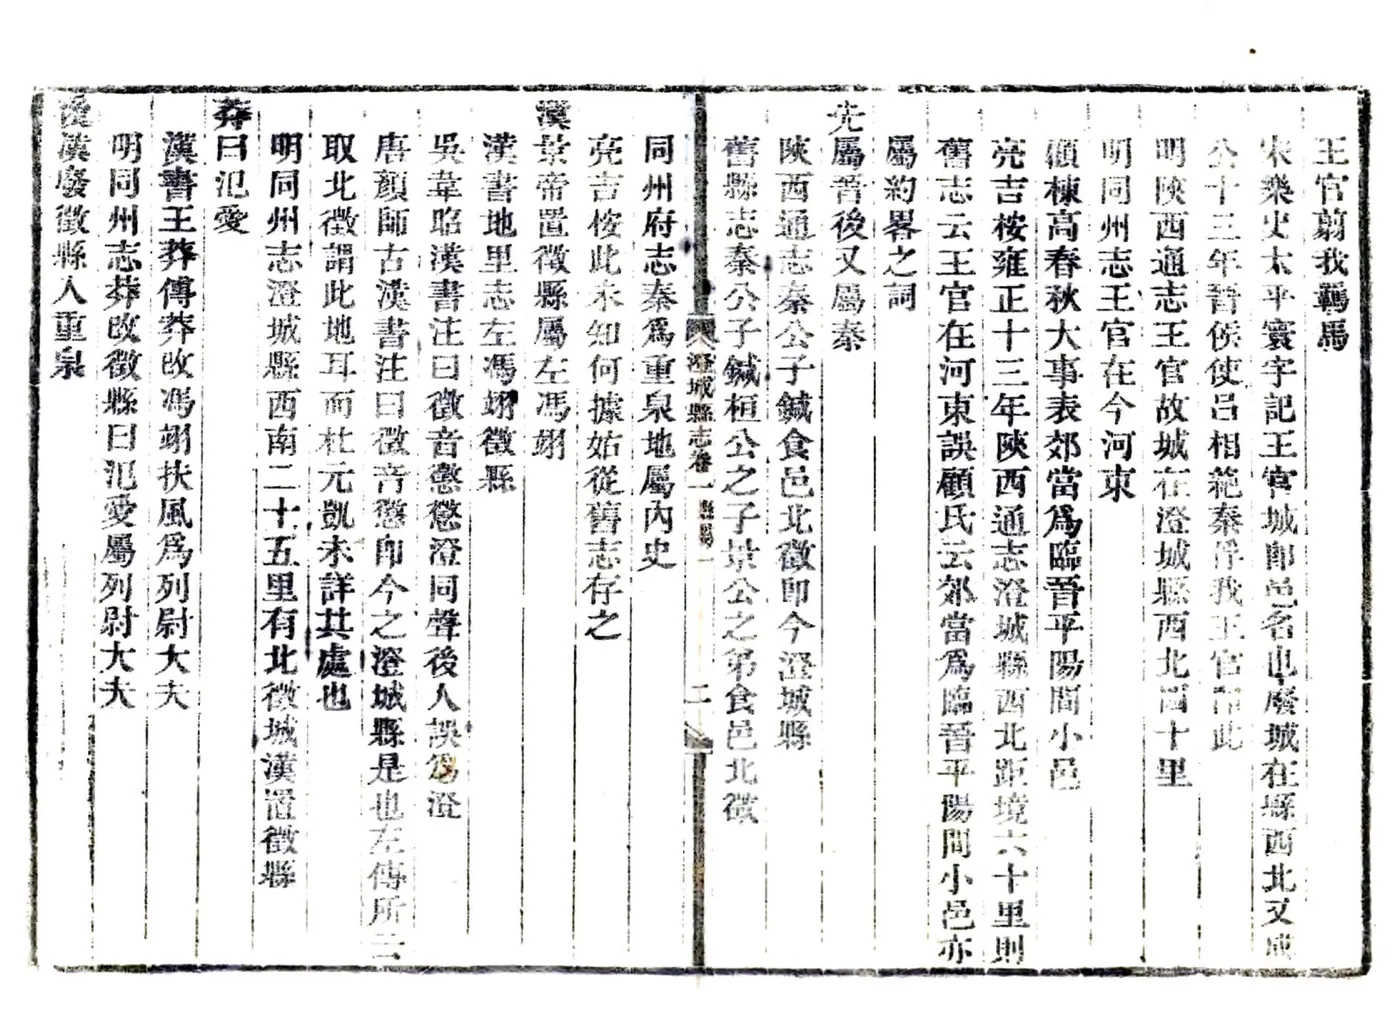 王官翦我羈馬
宋樂史太平寰宇記王官城即邑名也廢城在縣西北又成
公十三年晉侯使呂相絕秦俘我王官即此
明陝西通志王官故城在澄城縣西北四十里
明同州志王官在今河東
顧棟高春秋大事表郊當爲臨晉平陽間小邑
亮吉桉雍正十三年陝西通志澄城縣西北距境六十里則
舊志云王官在河東誤顧氏云郊當爲臨晉平陽間小邑亦
屬約畧之詞
先屬晉後又屬秦
陝西通志秦公子鍼食邑北徵即今澄城縣
舊縣志秦公子鍼桓公之子景公之弟食邑北徵
澄城縣志卷一 二
同州府志秦爲重泉地屬內史
亮吉桉此未知何據姑從舊志存之
漢景帝置徵縣屬左馮翊
漢書地里志左馮翊徵縣
吳韋昭漢書注曰徵音懲懲澄同聲後人誤爲澄
唐顏師古漢書注曰徵音懲即今之澄城縣是也左傳所云
取北徵謂此地耳而杜元凱未詳其處也
明同州志澄城縣西南二十五里有北徵城漢置徵縣
莽曰氾愛
漢書王莽傳莽改馮翊扶風爲列尉大夫
明同州志莽改徵縣曰氾愛屬列尉大夫
後漢廢徵縣入重泉